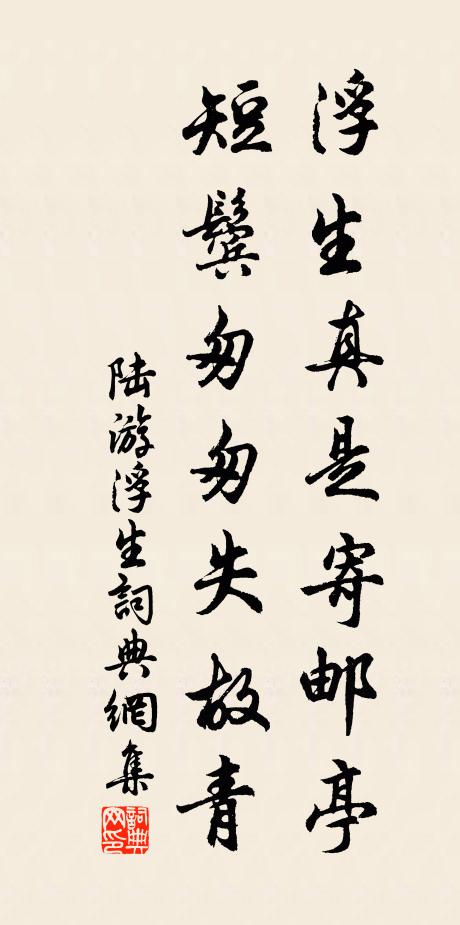 浮生真是寄邮亭
短鬓匆匆失故青
陆游浮生詞典網集
詞典
网印